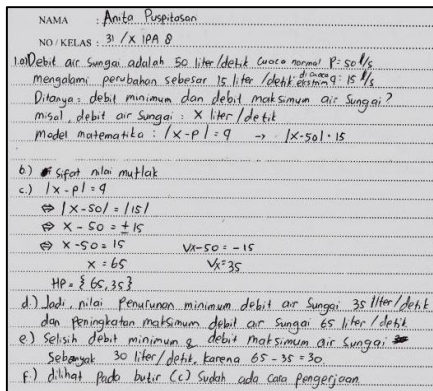 NAMA : Anita Puspitasari
NO/KELAS : 31 / X IPA 8
1.a) Debit air sungai adalah 50 liter/detik cuaca normal P = 50 l/s
mengalami perubahan sebesar 15 liter/detik di cuaca ekstrim q : 15 l/s
Ditanya : debit minimum dan debit maksimum air sungai ?
misal, debit air sungai : x liter/detik
model matematika : |x - p| = q → |x-50| = 15
b.) sifat nilai mutlak
c.) |x - p| = q
⇔ |x - 50| = |15|
⇔ x - 50 = ± 15
⇔ x - 50 = 15 Vx - 50 = -15
x = 65 Vx = 35
HP = { 65, 35 }
d.) Jadi, nilai penurunan minimum debit air sungai 35 liter/detik
dan peningkatan maksimum debit air sungai 65 liter/detik
e.) Selisih debit minimum & debit maksimum air sungai
Sebanyak 30 liter/detik. karena 65 - 35 = 30.
F.) dilihat pada butir (c) sudah ada cara pengerjaan